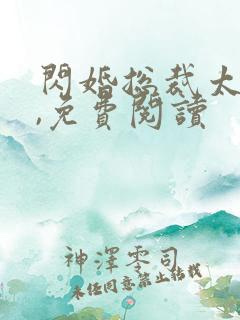 閃婚总裁太
,免費閱讀
神澤零司
未經同意禁止轉載